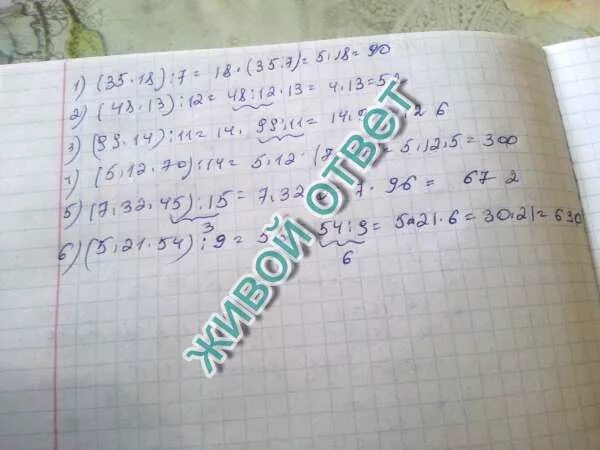 1) (35·18):7= 18·(35·7)= 5·18= 90
2) (48·13):12= 48:12·13= 4·13=5
3) (99·14):11= 14· 99:11= 14· 2 6
4) (5·12·70):14= 5·12·(7 = 5·12·5= 300
5) (7·32·45):15= 7·32 7· 96= 672
3
6) (5·21·54):9= 5 54:9= 5·21·6=30·21=630
6
живой ответ